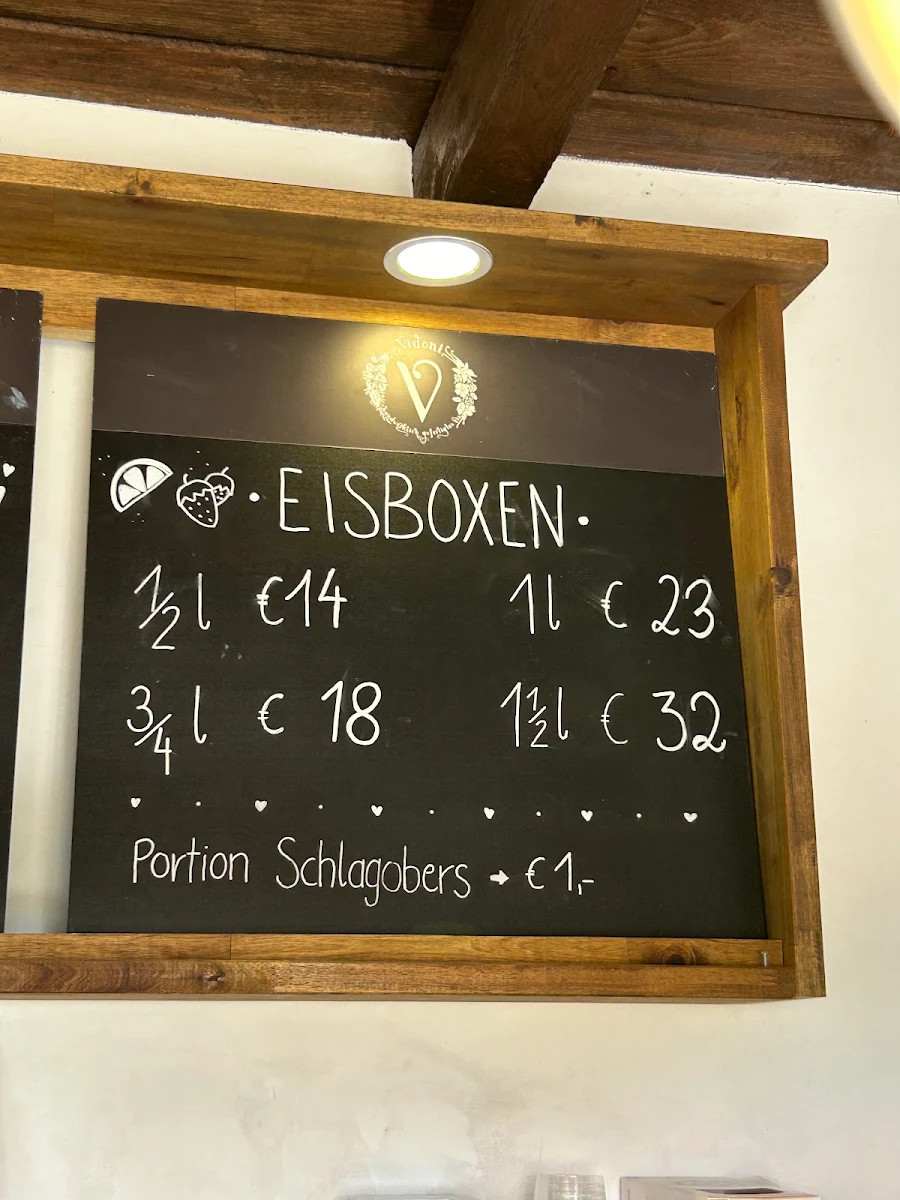 V
· EISBOXEN ·
1/2 l € 14 1l € 23
3/4 l € 18 1 1/2 l € 32
Portion Schlagobers → € 1,-